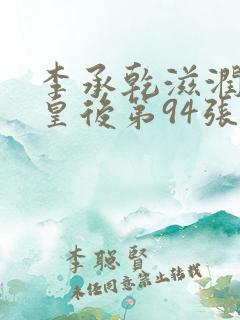 李承乾滋潤
皇後第94張
李聪賢
未任同意禁止转载